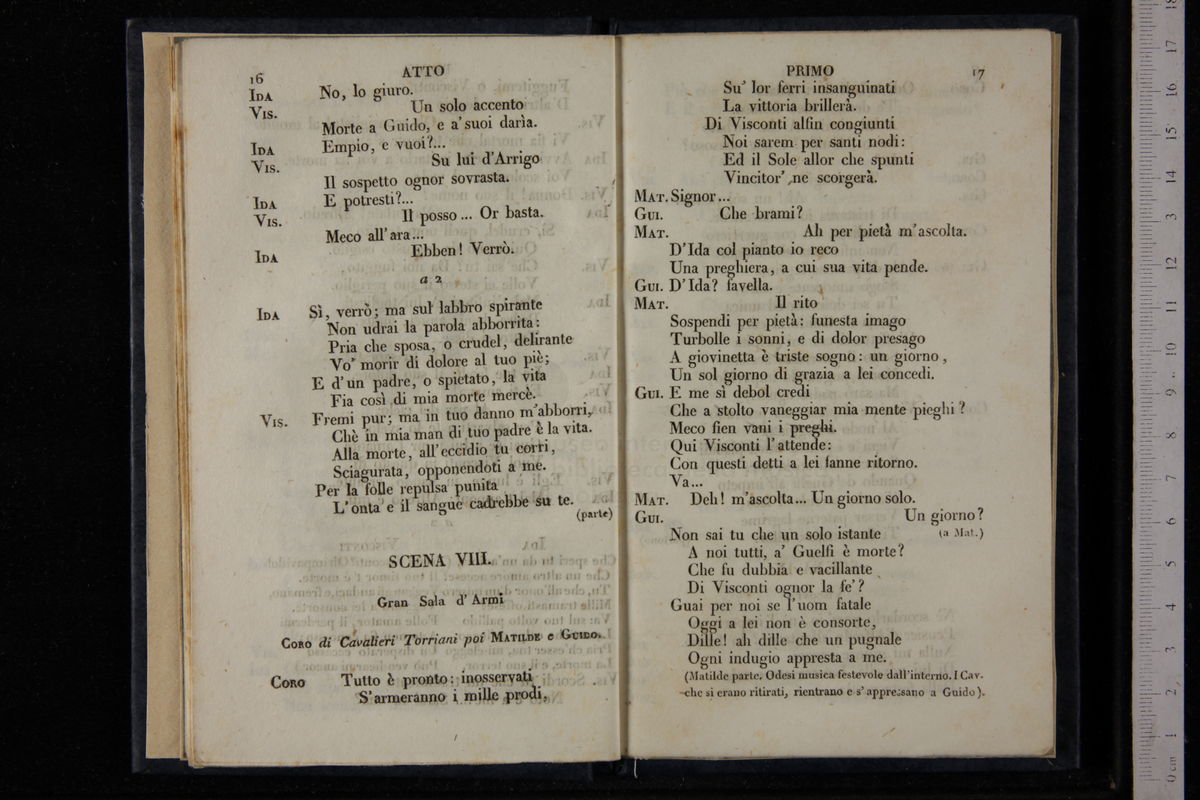 16 ATTO
IDA No, lo giuro.
VIS. Un solo accento
Morte a Guido, e a' suoi darìa.
IDA Empio, e vuoi?...
VIS. Su lui d'Arrigo
Il sospetto ognor sovrasta.
IDA E potresti?...
VIS. Il posso... Or basta.
Meco all'ara...
IDA Ebben! Verrò.
a 2
IDA Sì, verrò; ma sul labbro spirante
Non udrai la parola abborrita:
Pria che sposa, o crudel, delirante
Vo' morir di dolore al tuo piè;
E d'un padre, o spietato, la vita
Fia così di mia morte mercè.
VIS. Fremi pur; ma in tuo danno m'abborri,
Chè in mia man di tuo padre è la vita.
Alla morte, all'eccidio tu corri,
Sciagurata, opponendoti a me.
Per la folle repulsa punita
L'onta e il sangue cadrebbe su te.
(parte)
SCENA VIII.
Gran Sala d'Armi
CORO di Cavalieri Torriani poi MATILDE e GUIDO.
CORO Tutto è pronto: inosservati
S'armeranno i mille prodi,
PRIMO 17
Su' lor ferri insanguinati
La vittoria brillerà.
Di Visconti alfin congiunti
Noi sarem per santi nodi:
Ed il Sole allor che spunti
Vincitor' ne scorgerà.
MAT. Signor...
GUI. Che brami?
MAT. Ah per pietà m'ascolta.
D'Ida col pianto io reco
Una preghiera, a cui sua vita pende.
GUI. D'Ida? favella.
MAT. Il rito
Sospendi per pietà: funesta imago
Turbolle i sonni, e di dolor presago
A giovinetta è triste sogno: un giorno,
Un sol giorno di grazia a lei concedi.
GUI. E me sì debol credi
Che a stolto vaneggiar mia mente pieghi?
Meco fien vani i preghi.
Qui Visconti l'attende:
Con questi detti a lei fanne ritorno.
Va...
MAT. Deh! m'ascolta... Un giorno solo.
GUI. Un giorno?
Non sai tu che un solo istante (a Mat.)
A noi tutti, a' Guelfi è morte?
Che fu dubbia e vacillante
Di Visconti ognor la fe'?
Guai per noi se l'uom fatale
Oggi a lei non è consorte,
Dille! ah dille che un pugnale
Ogni indugio appresta a me.
(Matilde parte. Odesi musica festevole dall'interno. I Cav.
che si erano ritirati, rientrano e s'appressano a Guido).
0 cm 1 2 3 4 5 6 7 8 9 10 11 12 13 14 15 16 17 18